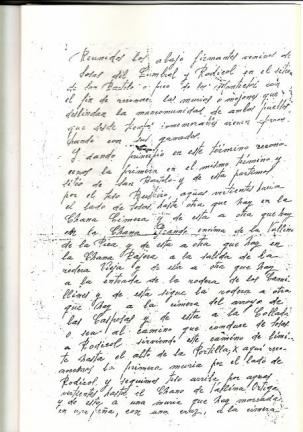 Reunidos los abajo firmantes vecinos de
Sotos del Cumbral y Rodicol en el sitio
de San Bartolo o pico de los Montes con
el fin de reconocer las murias o mojones que
deslindan la mancomunidad de ambos pueblos
que desde tiempo inmemorial vienen aprove-
chando con los ganados.
Y dando principio en este término recono-
cemos la primera en el mismo término y
sitio de San Bartolo y de esta partimos
por el alto aguas vertientes hacia
el lado de Sotos hasta otra que hay en la
Chana Cimera y de esta a otra que hay
en la Chana encima de la Vallina
de la Peca y de esta a otra que hay en
la Chana Rasera a la salida de la
rodera Vieja y de esta a otra que hay
a la entrada de la rodera de los
y de esta sigue la rodera a otra
que hay a la cimera del arroyo de
las y de esta a la Collada
o sea al camino que conduce de Sotos
a Rodicol sirviendo este camino de limi-
te hasta el alto de la Portilla, y aquí reco-
nocemos la primera muria por el lado de
Rodicol y seguimos todo arriba por aguas
vertientes hasta el Chano de Vallina Ortega
y de esta a una muria que hay marcada
en una peña, con una cruz, a la cimera